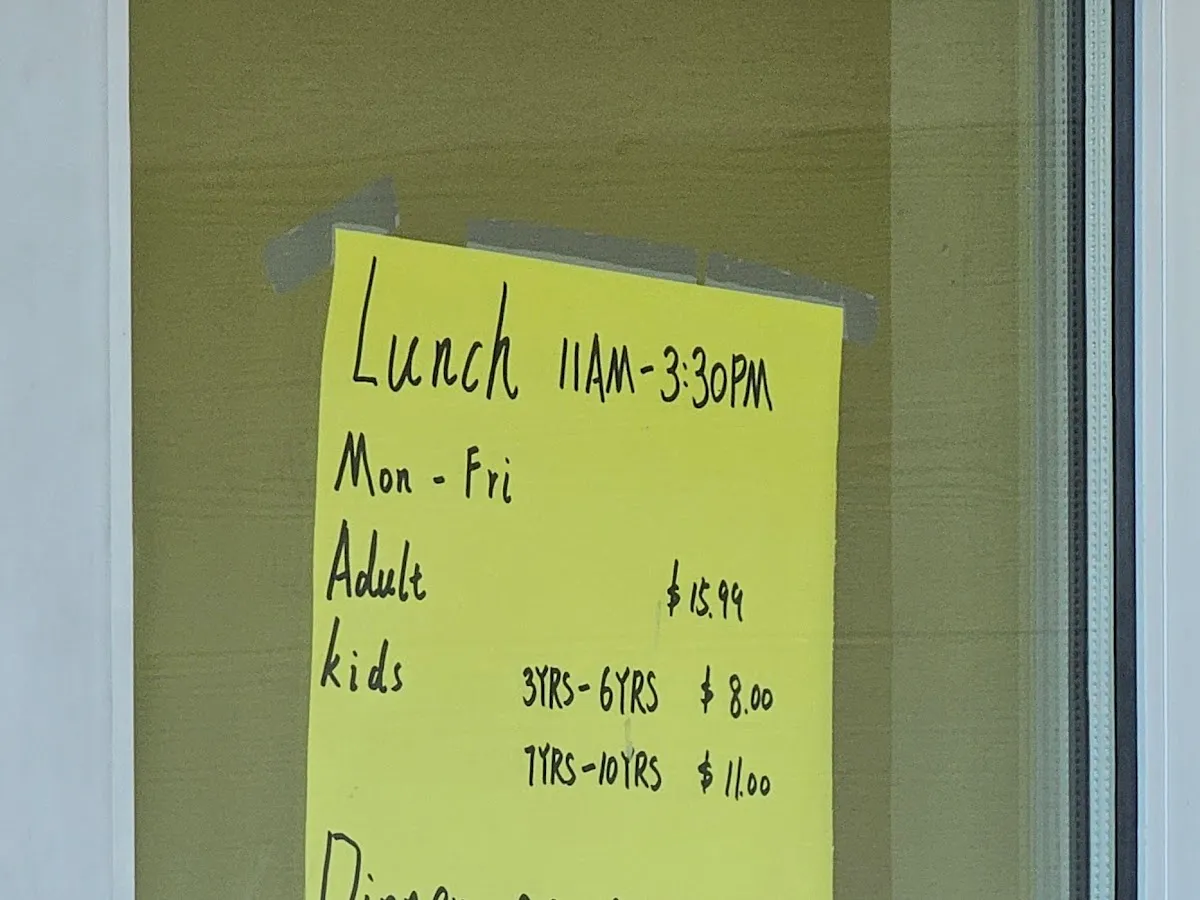 Lunch 11AM-3:30PM
Mon - Fri
Adult $15.99
kids 3YRS-6YRS $8.00
7YRS-10YRS $11.00
Dinner